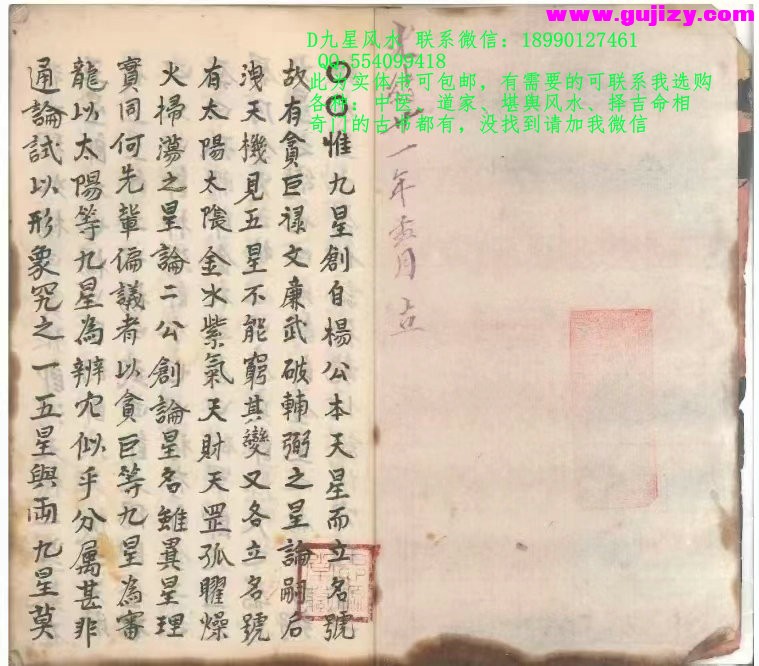 www.gujizy.com
D九星风水 联系微信：18990127461
QQ:554099418
此为实体书可包邮，有需要的可联系我选购
各种：中医、道家、堪舆风水、择吉命相
奇门的古书都有，没找到请加我微信
一年
月
惟九星創自楊公本天星而立名號
故有貪巨禄文廉武破輔弼之星論嗣后
洩天機見五星不能窮其變又各立名號
有太陽太陰金水紫氣天財天罡孤曜燥
火掃蕩之星論二公創論星名雖異星理
實同何先輩偏議者以貪巨等九星為審
龍以太陽等九星為辨穴似乎分属甚非
通論試以形象究之一五星與両九星莫